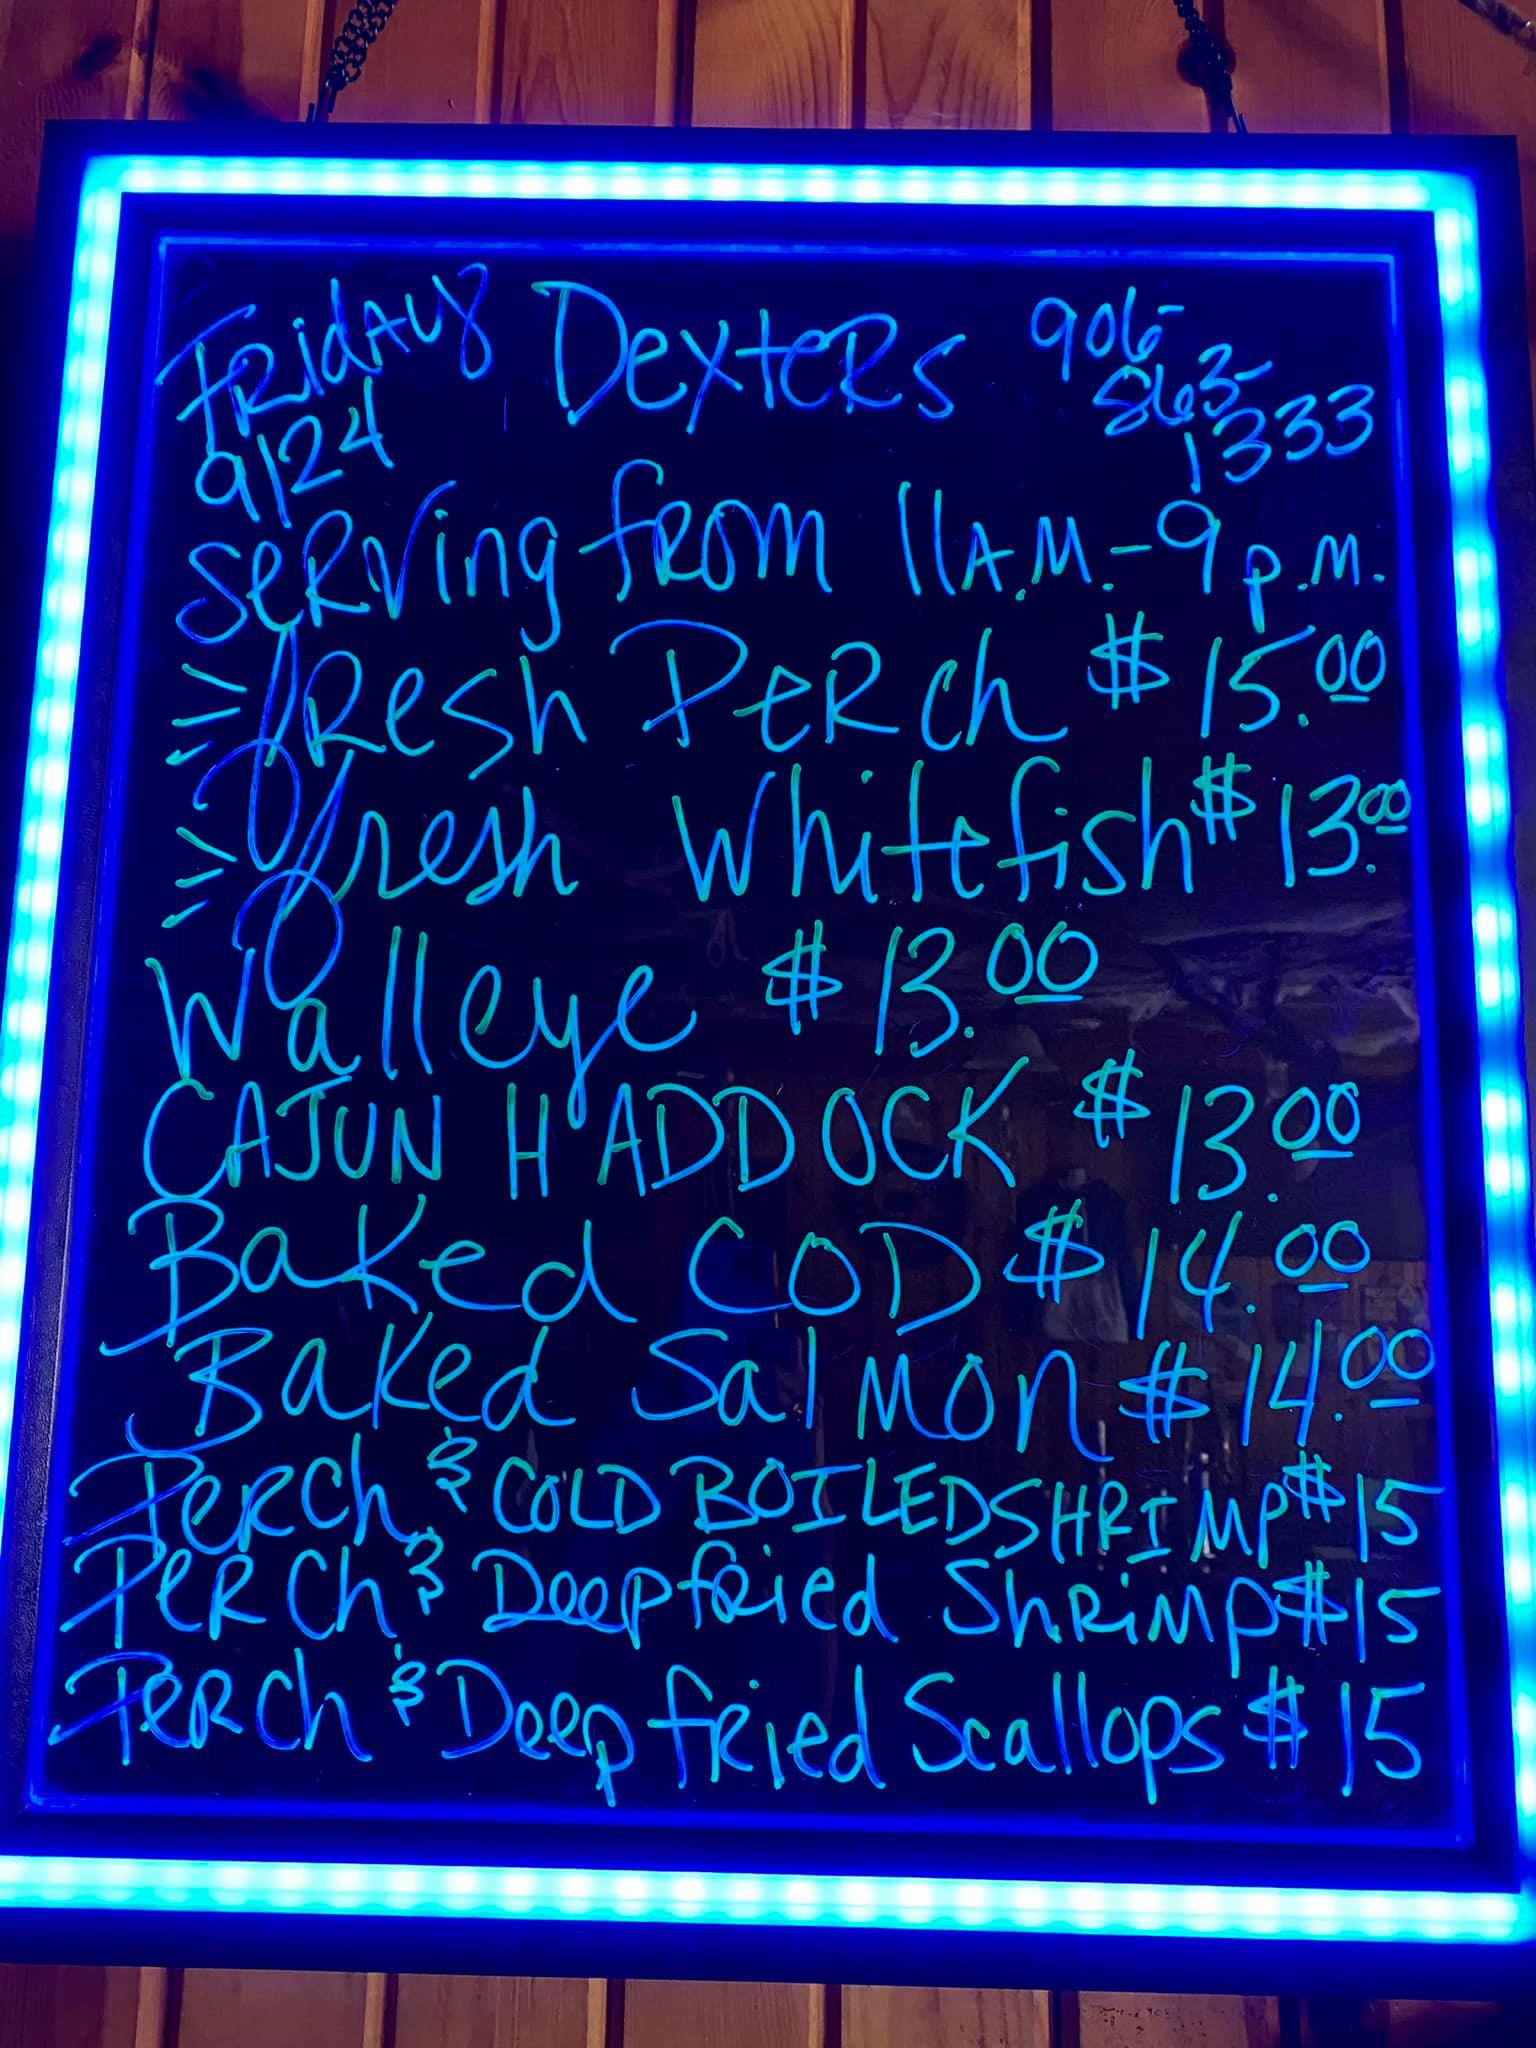 FRidAy Dexters 906-
9/24 863-
1333
Serving from 11 A.M. - 9 p.m.
fresh Perch $15.00
fresh whitefish $13.00
Walleye $13.00
CAJUN HADDOCK $13.00
Baked COD $14.00
Baked Salmon $14.00
Perch & COLD BOILED SHRIMP $15
Perch & Deep fried Shrimp $15
Perch & Deep fried Scallops $15